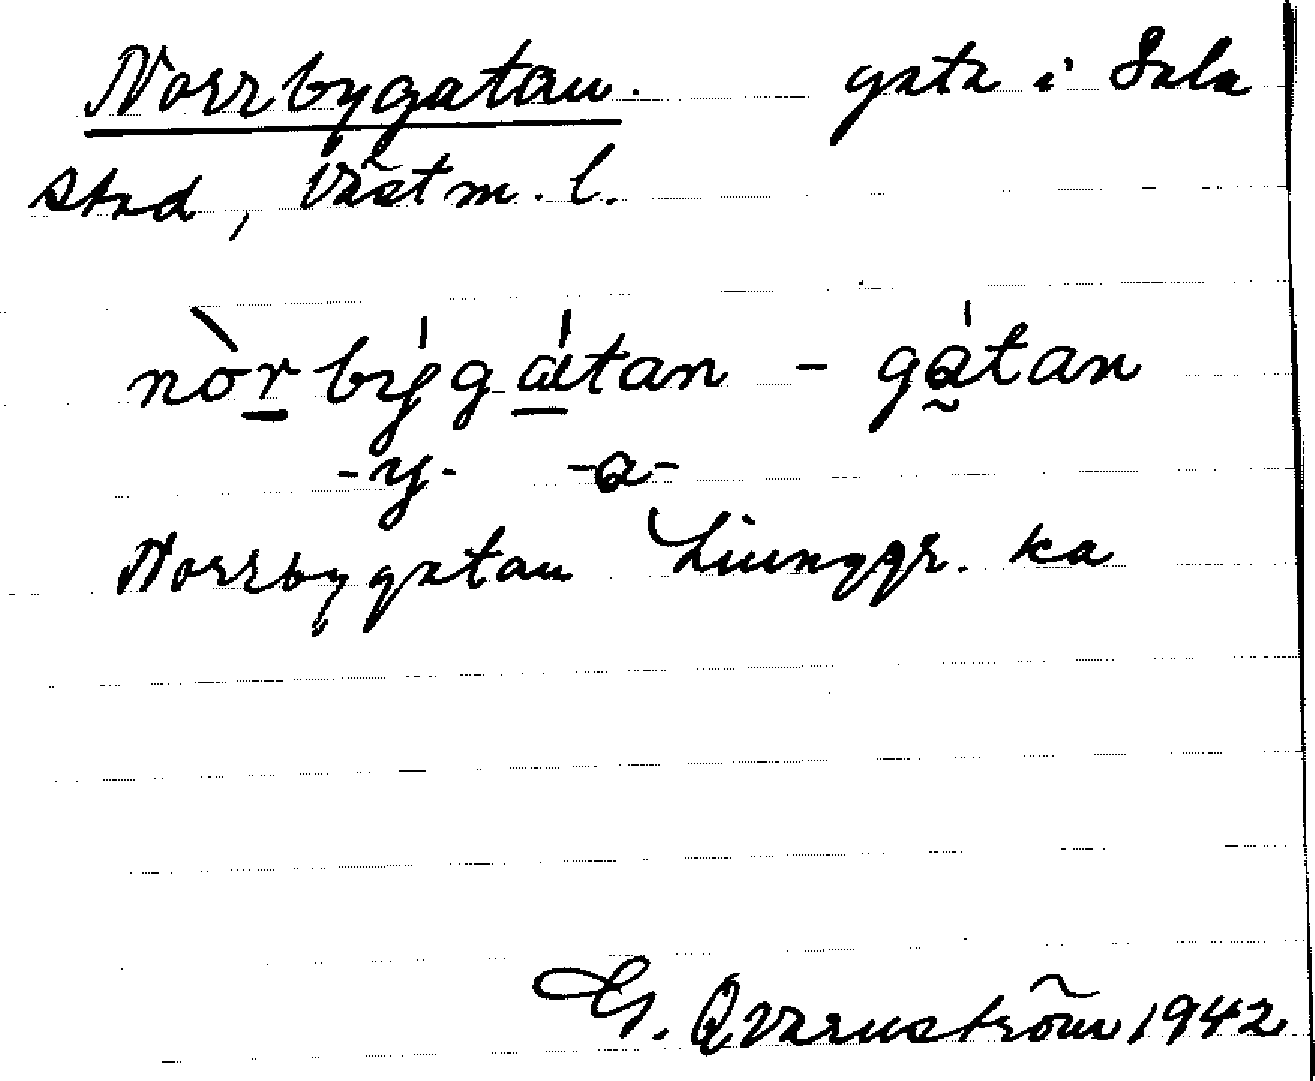 Norrbygatan. gata i Sala
stad, Västm. l.
nòrbýgátan - gátan
-y- -a-
Norrbygatan Liunggr. ka
G. Qvarnström 1942